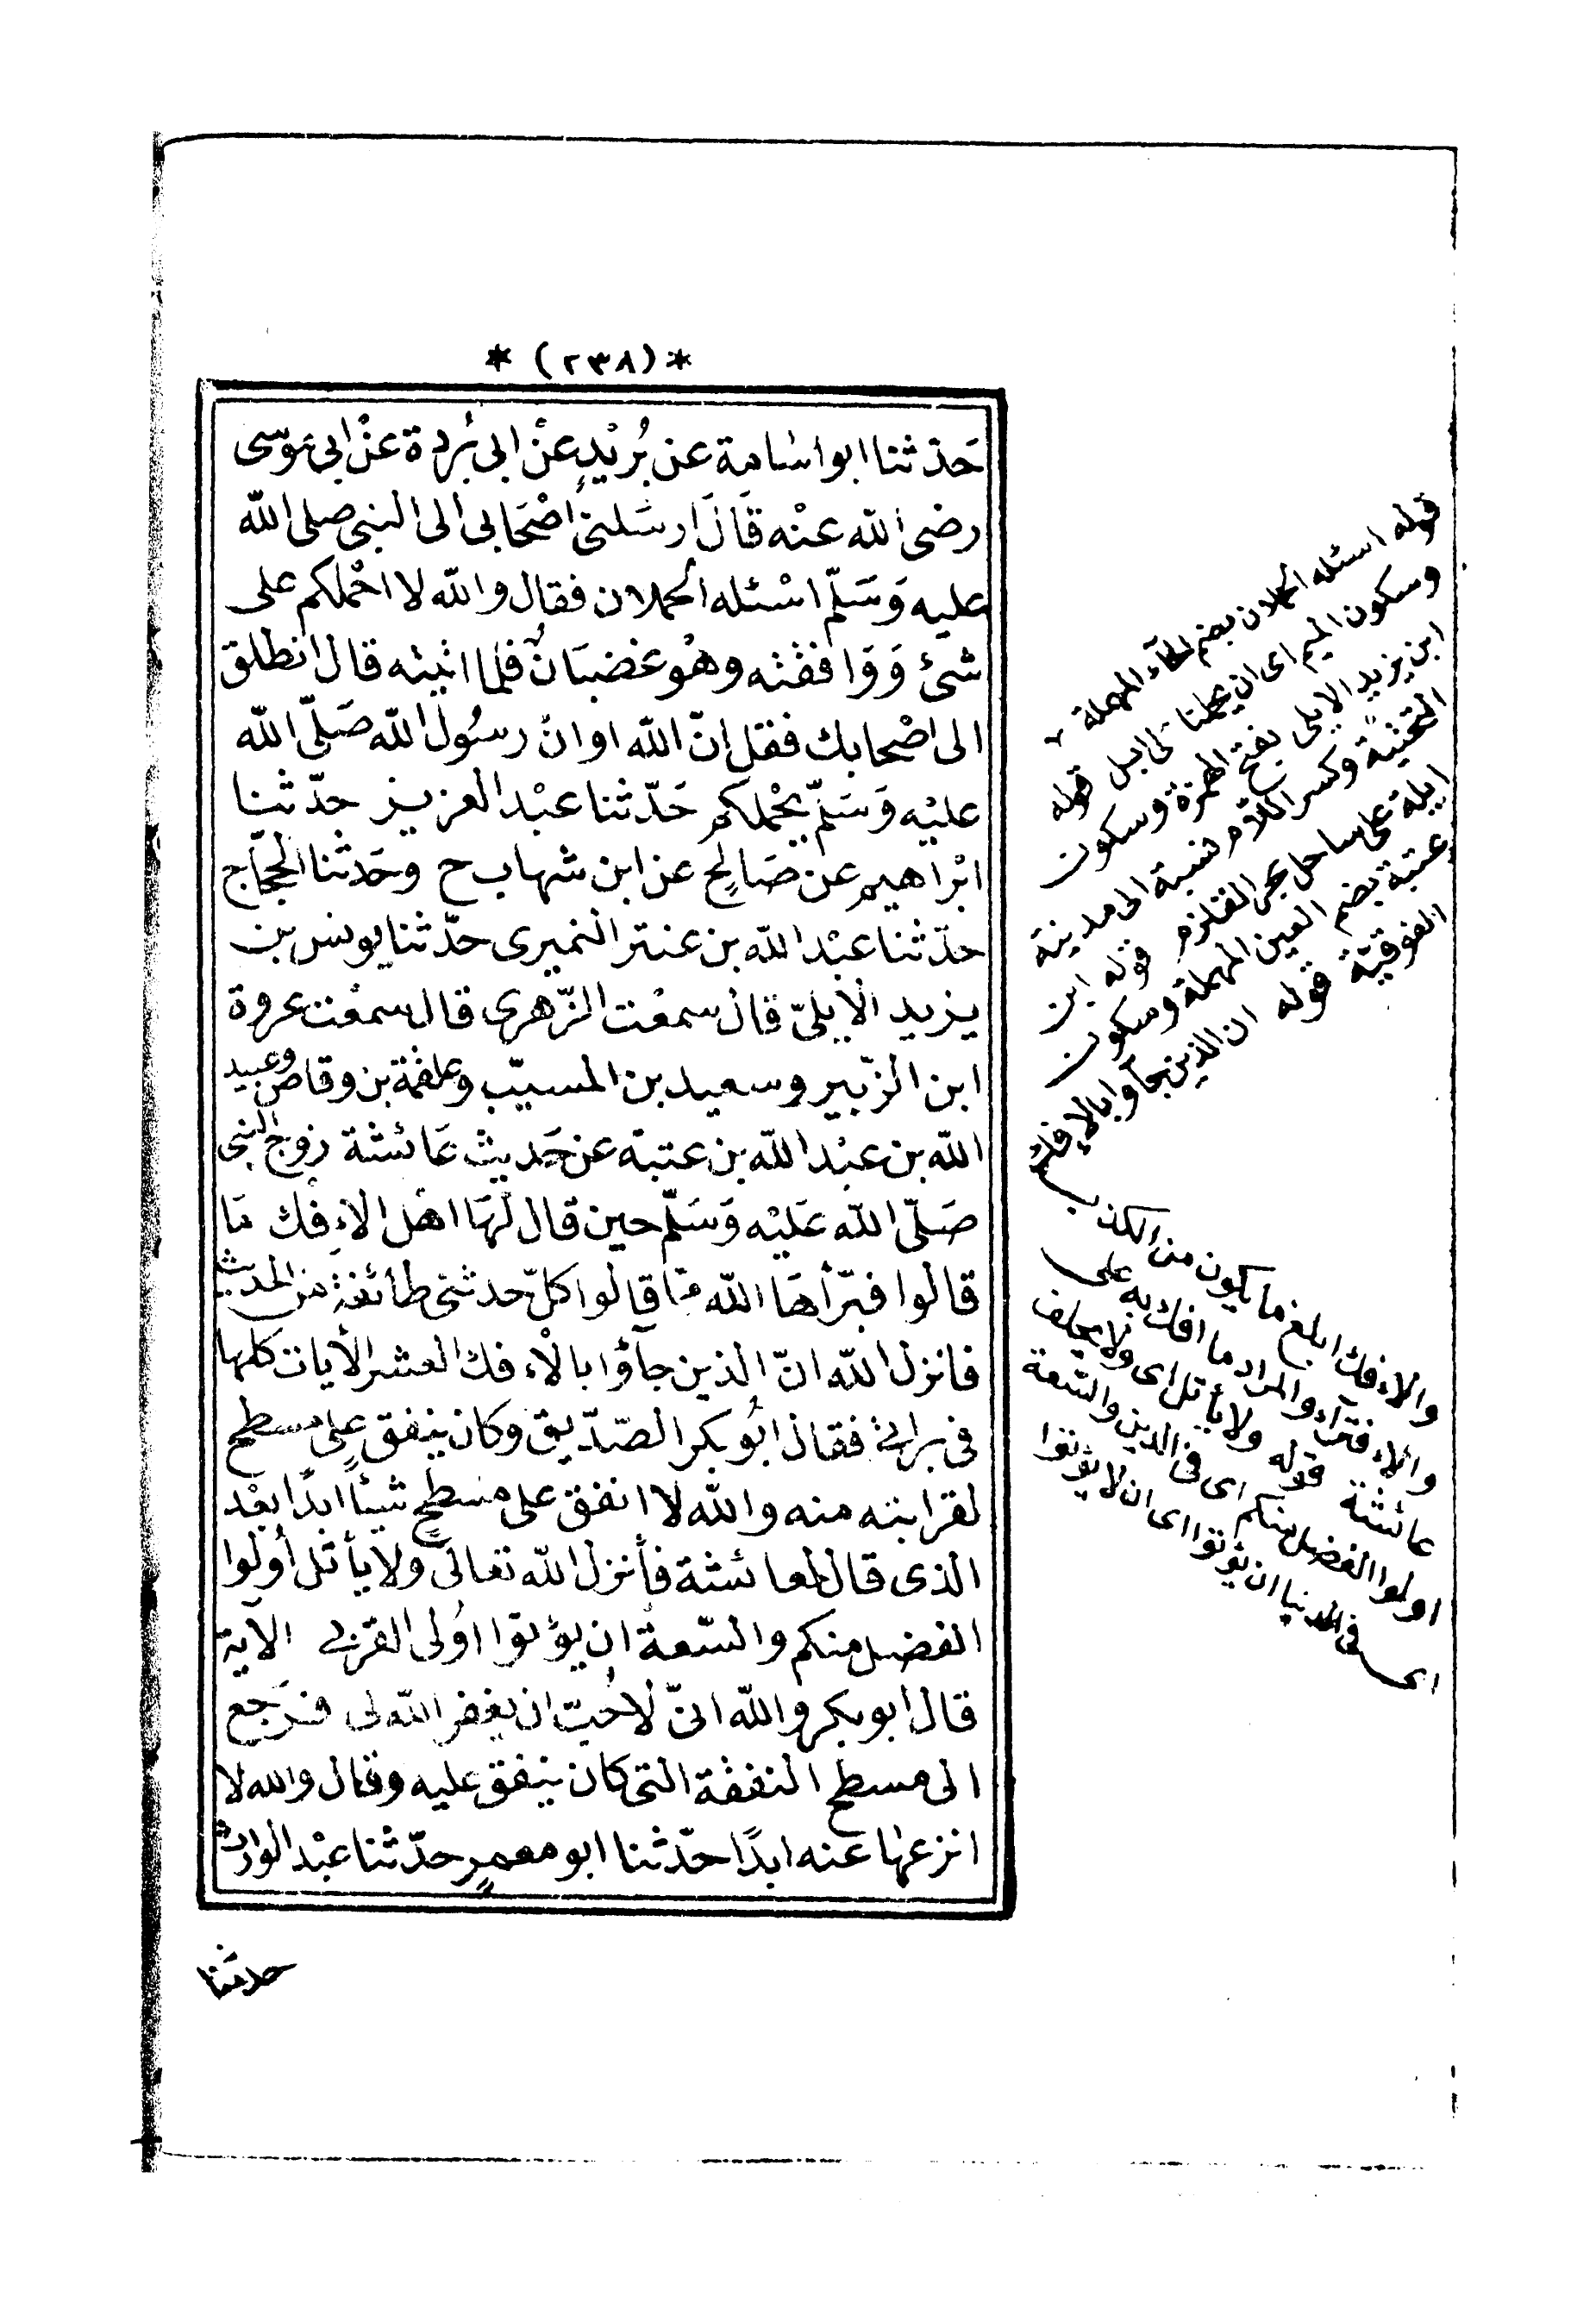 *(٢٣٨)*
حَدثنا ابو اسامة عن بُرَيْدٍ عنْ ابى بُردة عنْ ابى موسى
رضى الله عنْه قَالَ ارسَلنى اصْحَابى الى النبى صلى الله
عليه وَسَلّم اسْئله الحملان فقال والله لا احْملكم على
شئ وَوَافقته وهْو غضبَانُ فلما اتيته قال انطلق
الى اصْحابك فقل انّ الله او انّ رسُول الله صَلّى الله
عليْه وَسَلّم يحْملكم حَدّثنا عبْد العزيز حدّثنا
ابْراهيم عن صَالِح عن ابن شهاب ح وحَدثنا الحجّاج
حدّثنا عبْد الله بن عنتر النميرى حدّثنا يونس بن
يزيد الأيلىّ قال سمعْت الزّهرى قال سمعْت عروة
ابن الزّبير وسعيد بن المسيّب وعلقمة بن وقاص وعبيد
الله بن عبْد الله بن عتبة عن حَديث عَائشة زوج النبى
صَلّى الله عَليْه وَسَلّم حين قال لهَا اهْل الاِءفْك مَا
قالوا فبرّأهَا الله ممّا قالوا كلّ حدثنى طائفة من الحديث
فانزل الله انّ الذين جآؤا بالاْءفك العشر الأيات كلها
فى براءتى فقال ابُو بكر الصّدّيق وكان ينفق على مسطح
لقرابته منه والله لا انفق على مسْطحٍ شيئًا ابدًا بعْد
الذى قال لعائشة فأنزل الله تعالى ولا يأتل أولوا
الفضل منكم والسّعة ان يؤتوا اُولى القربى الاَية
قال ابو بكر والله انىّ لأحبّ ان يغفر الله لى فرَجع
الى مسطح النفقة التى كان ينفق عليه وقال والله لا
انزعها عنه ابدًا حدّثنا ابو معمرٍ حدّثنا عبْد الوارث
حدثنا
قوله اسئله الحملان بضم الحآء المهملة
وسكون الميم اى ان يحملنا على ابل قوله
ابن يزيد الايلى بفتح الهمزة وسكون
التحتيّة وكسر اللام نسبة الى مدينة
ايلة على ساحل بحر القلزم قوله ابن
عتبة بضم العين المهملة وسكون
الفوقيّة قوله ان الذين جآؤا بالاِفك
والاءفك ابلغ ما يكون من الكذب
والاءفترآء والمراد ما افك به على
عائشة قوله ولا يأتل اى ولا يحلف
اولوا الفضل منكم اى فى الدين والسّعة
اى فى الدنيا ان يؤتوا اى ان لا يؤتوا